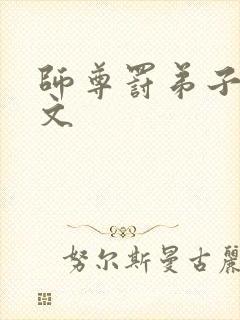 師尊罚弟子
文
努尔斯曼古麗